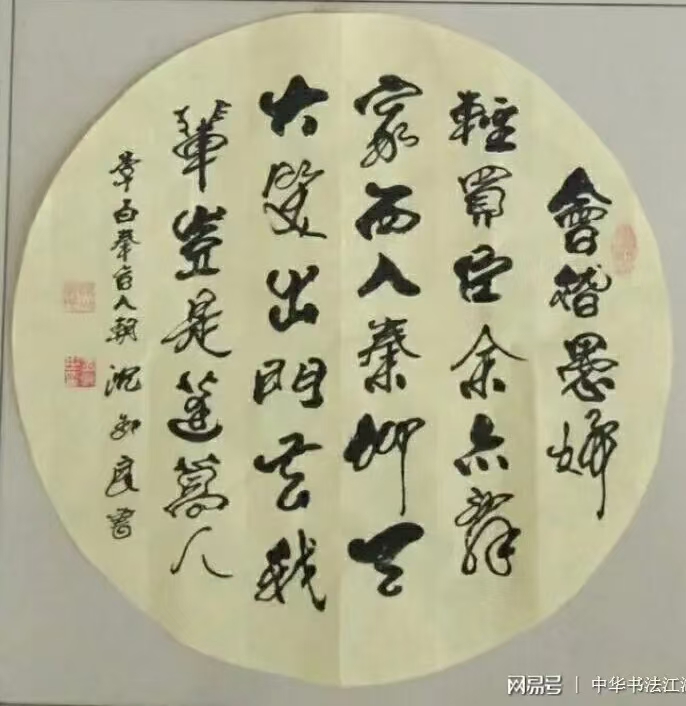 會稽愚婦
輕買臣余亦辭
家西入秦仰天
大笑出門去我
輩豈是蓬蒿人
入朝 沈 度書
网易号 | 中华书法江